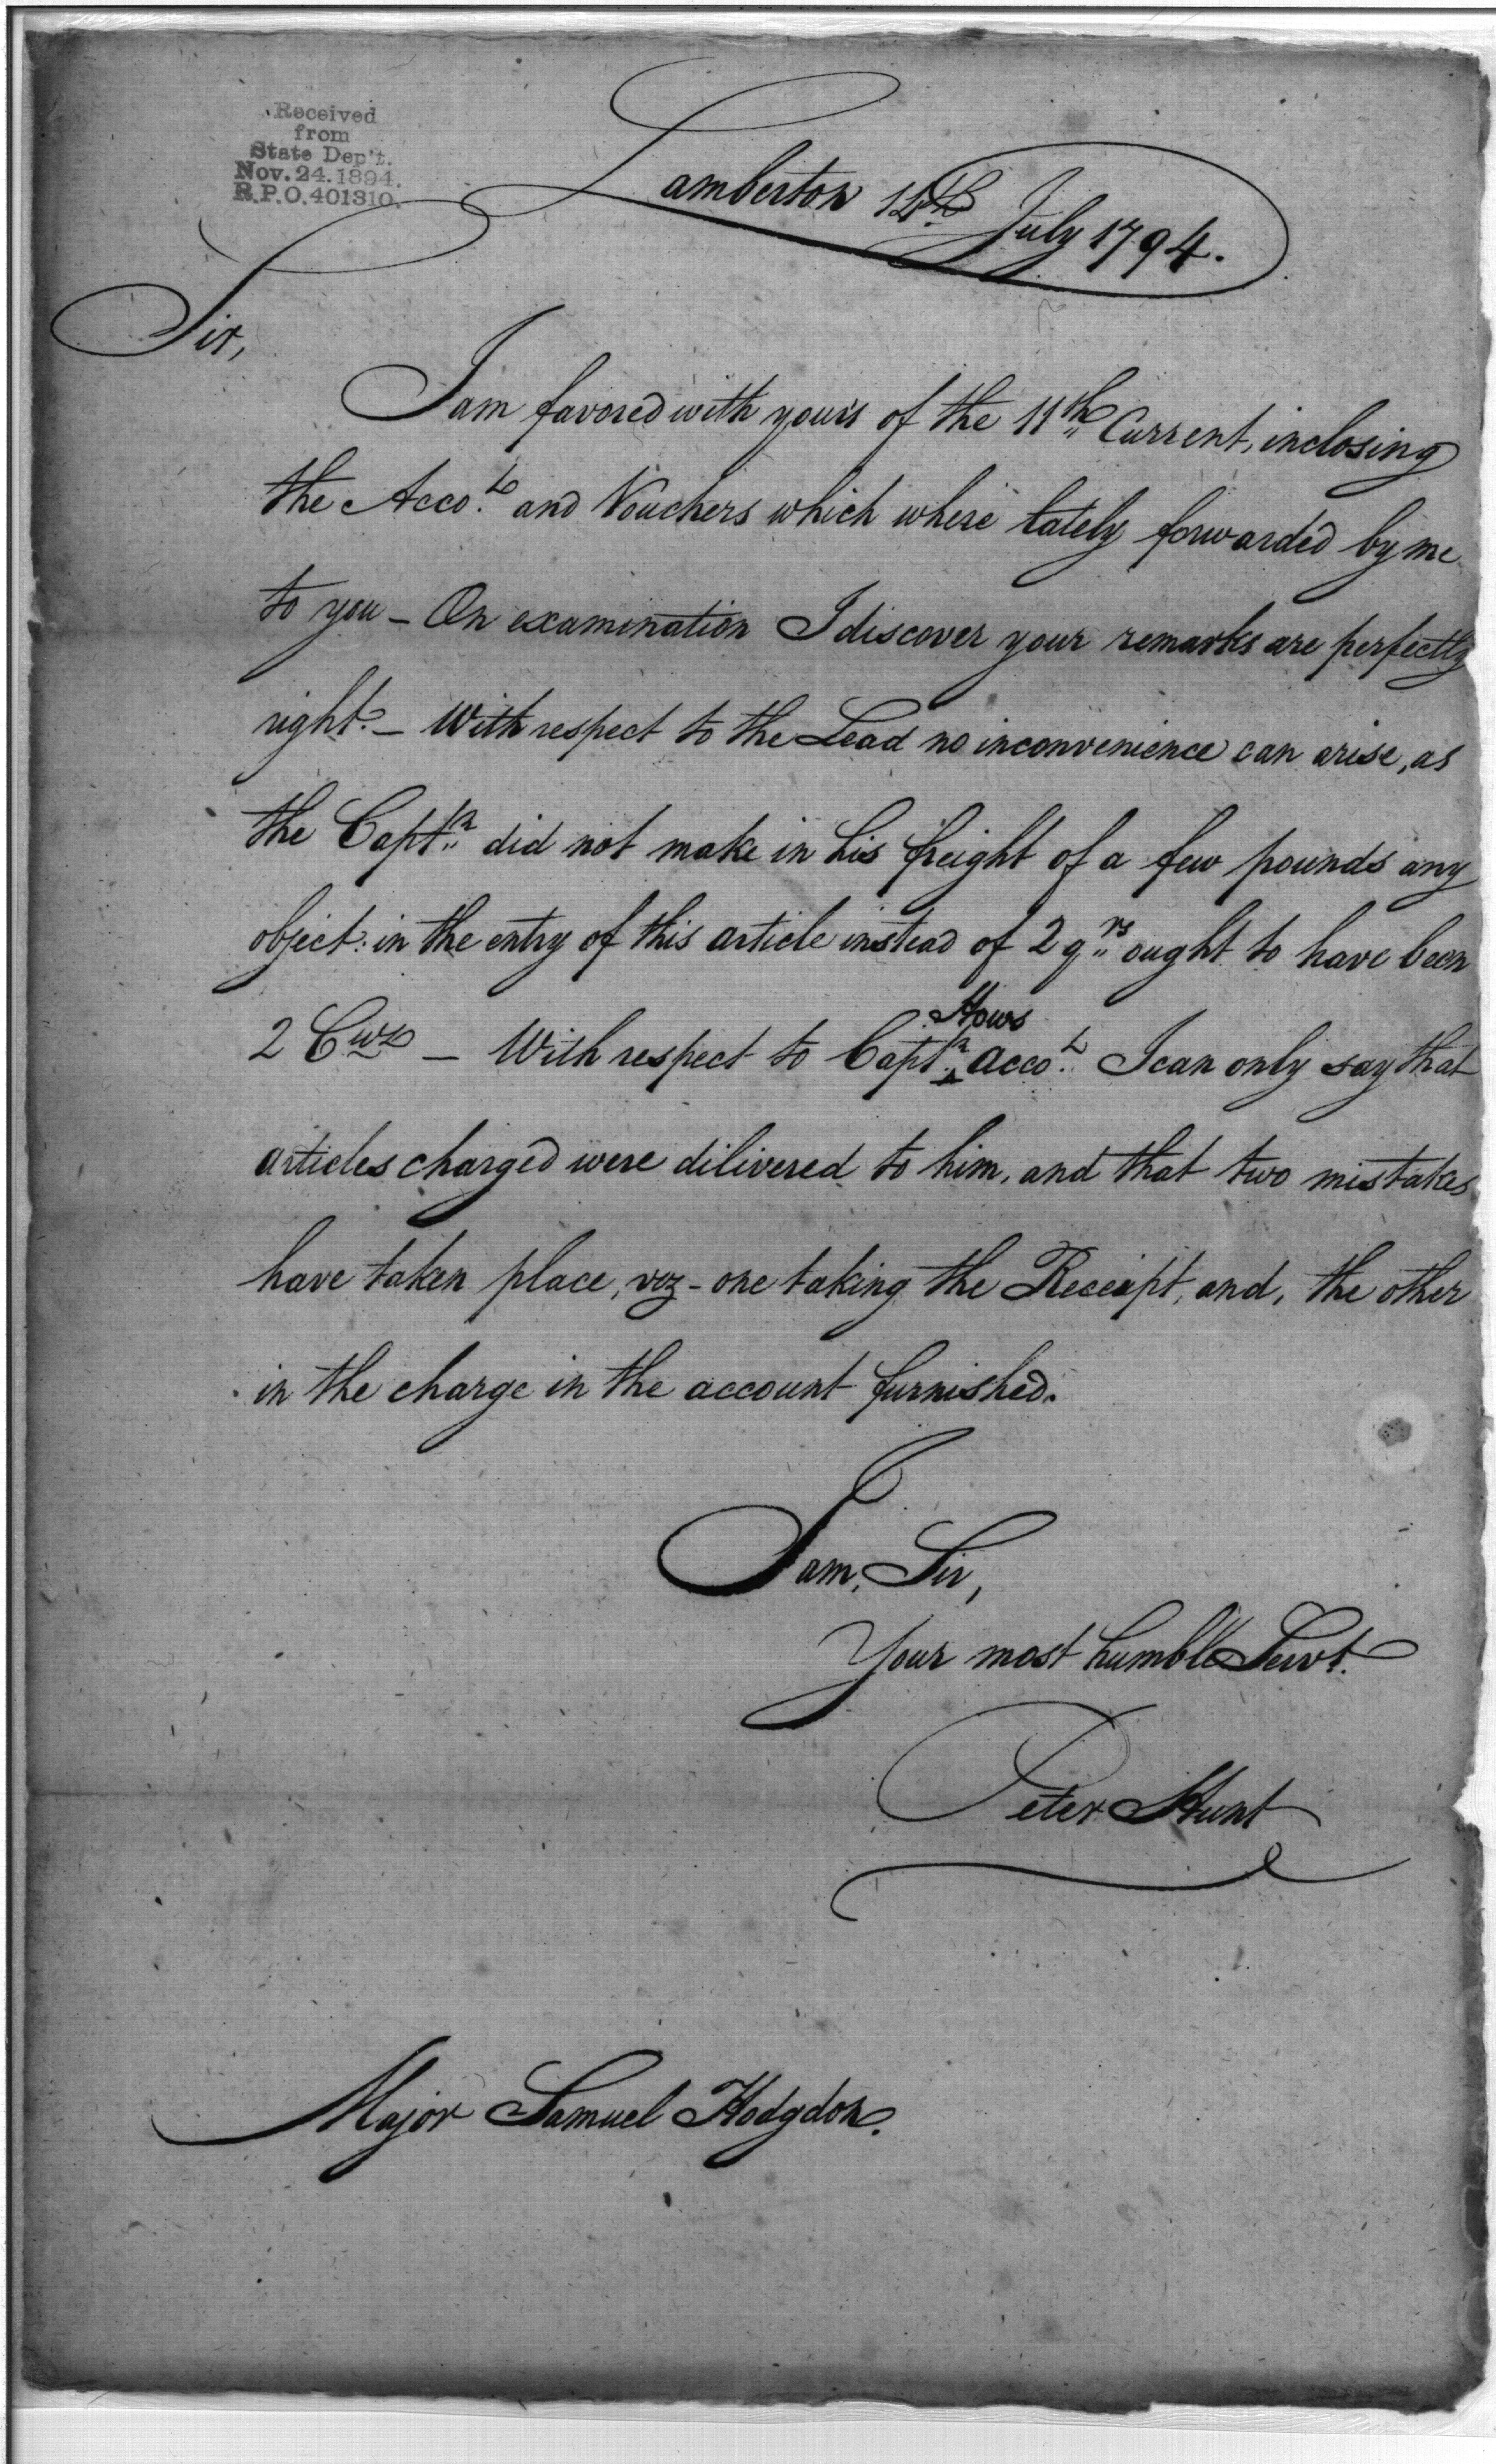 Received
from
State Dep't.
Nov. 24. 1894.
R.P.O. 401310.
Lamberton 14th July 1794.
Sir,
I am favored with yours of the 11th Current, inclosing
the Accot. and Vouchers which where lately forwarded by me
to you - On examination I discover your remarks are perfectly
right. - With respect to the Lead no inconvenience can arise, as
the Captn. did not make in his freight of a few pounds any
object. in the entry of this article instead of 2 qrs. ought to have been
2 Cwt - With respect to Captn. Hows accot. I can only say that
articles charged were dilivered to him, and that two mistakes
have taken place, viz - one taking the Receipt, and, the other
in the charge in the account furnished.
I am, Sir,
Your most humble Servt.
Peter Hunt
Major Samuel Hodgdon.